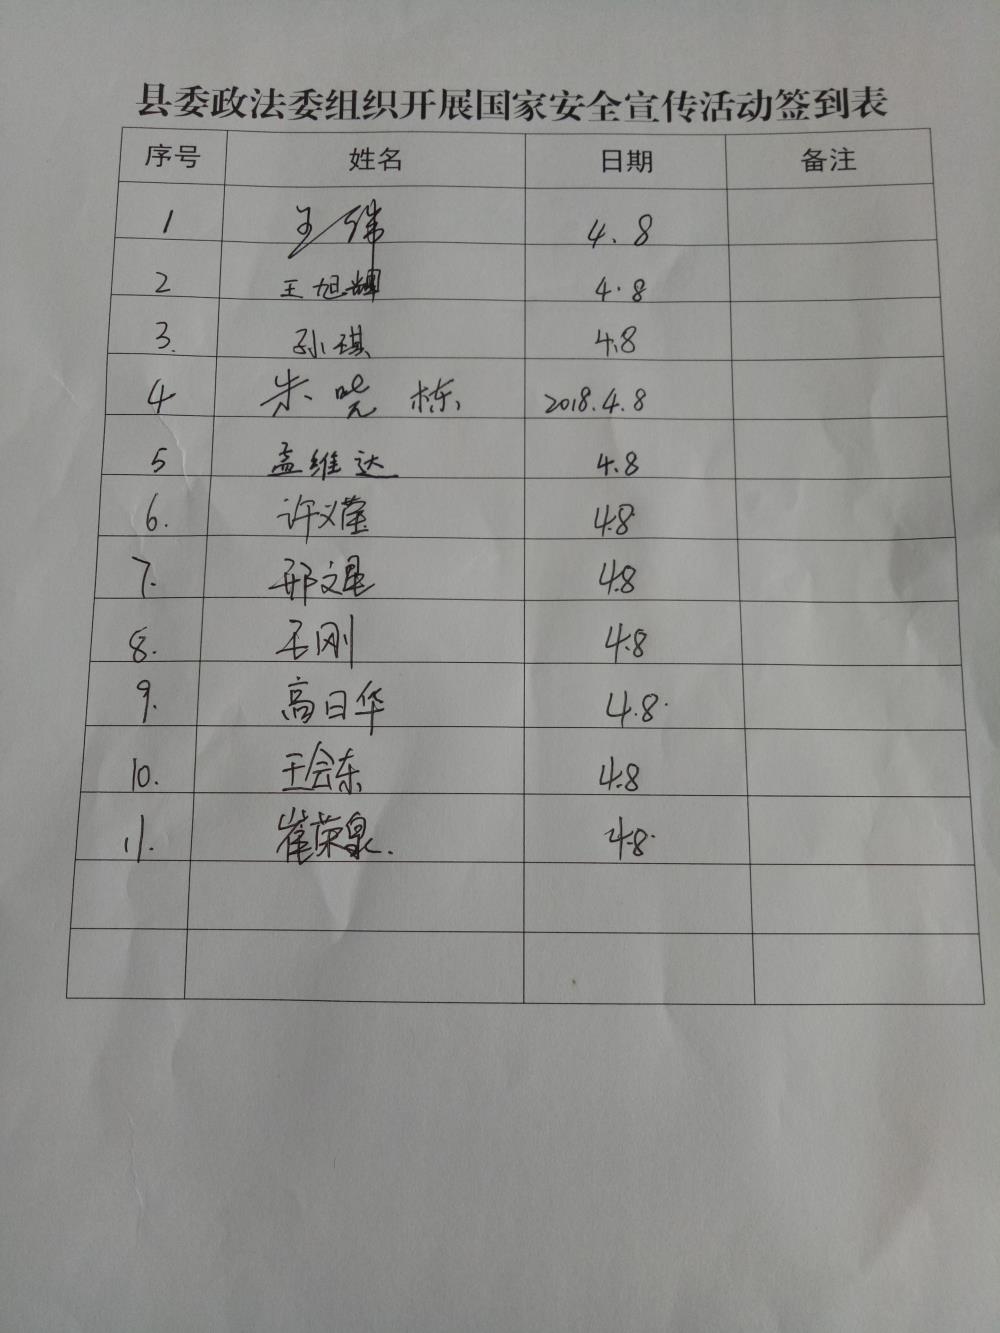 县委政法委组织开展国家安全宣传活动签到表
序号 姓名 日期 备注
1 王伟 4.8
2 王旭辉 4.8
3. 孙琪 4.8
4 朱晓栋 2018.4.8
5 孟维达 4.8
6. 许义莹 4.8
7. 邢文星 4.8
8. 石刚 4.8
9. 高日华 4.8.
10. 王会东 4.8
11. 崔荣泉. 4.8.